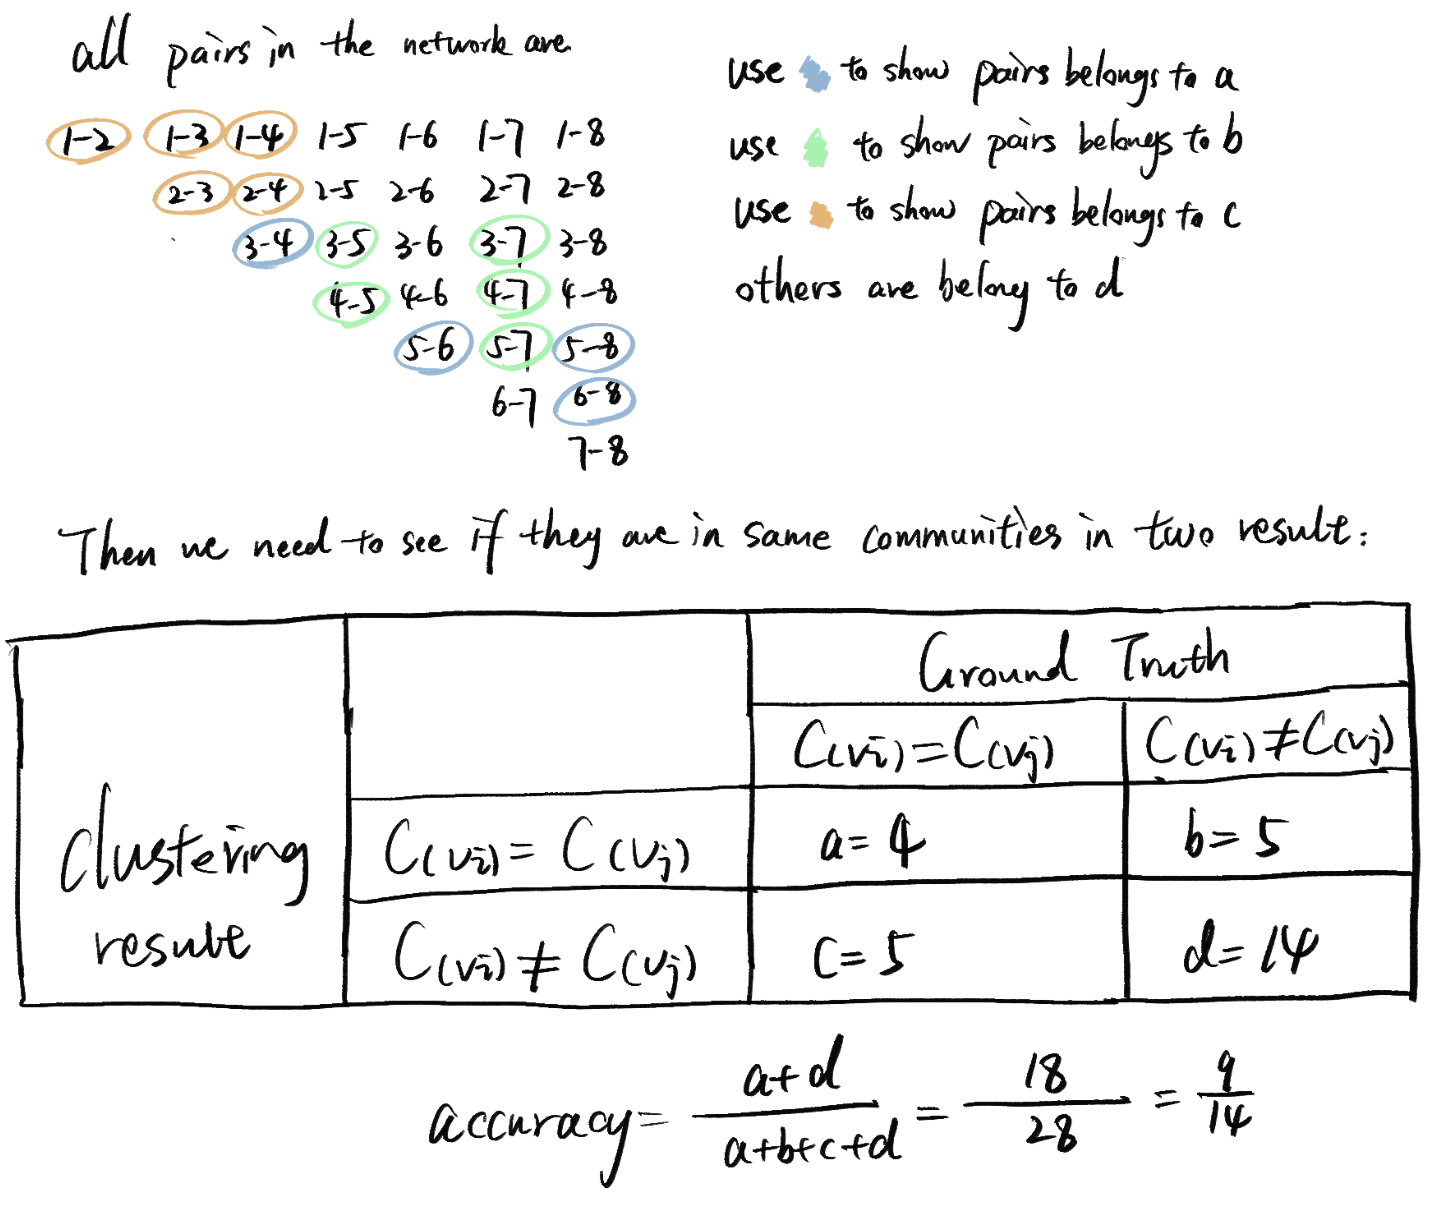 all pairs in the network are
1-2 1-3 1-4 1-5 1-6 1-7 1-8
2-3 2-4 2-5 2-6 2-7 2-8
3-4 3-5 3-6 3-7 3-8
4-5 4-6 4-7 4-8
5-6 5-7 5-8
6-7 6-8
7-8
use to show pairs belongs to a
use to show pairs belongs to b
use to show pairs belongs to c
others are belong to d
Then we need to see if they are in same communities in two result:
Ground Truth
C(vi)=C(vj) C(vi)≠C(vj)
Clustering
result
C(vi)=C(vj) a=4 b=5
C(vi)≠C(vj) c=5 d=14
accuracy= a+d / a+b+c+d = 18 / 28 = 9 / 14